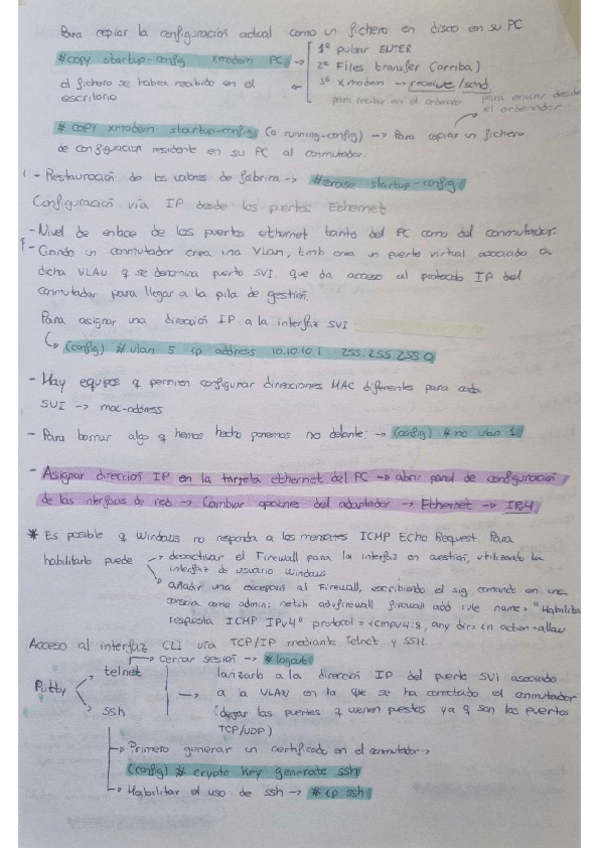 Para copiar la configuración actual como un fichero en disco en su PC
#copy startup-config xmodem PC → 1º pulsar ENTER
2º Files transfer (arriba)
el fichero se habrá recibido en el ← 3º xmodem → receive/send
escritorio para recibir en el ordenador para enviar desde el ordenador
# copy xmodem startup-config (o running-config) → Para copiar un fichero
de configuración residente en su PC al conmutador.
- Restauración de los valores de fábrica → #erase startup-config
Configuración vía IP desde los puertos Ethernet
- Nivel de enlace de los puertos ethernet tanto del PC como del conmutador.
- Cuando un conmutador crea una Vlan, tmb crea un puerto virtual asociado a
dicha VLAN q se denomina puerto SVI. que da acceso al protocolo IP del
conmutador para llegar a la pila de gestión.
Para asignar una dirección IP a la interfaz SVI
↳ (config) # vlan 5 ip address 10.10.10.1 255.255.255.0
- Hay equipos q permiten configurar direcciones MAC diferentes para cada
SVI → mac-address
- Para borrar algo q hemos hecho ponemos no delante: → (config) # no vlan 1
- Asignar dirección IP en la tarjeta ethernet del PC → abrir panel de configuración
de las interfaces de red → Cambiar opciones del adaptador → Ethernet → IPv4
* Es posible q Windows no responda a los mensajes ICMP Echo Request. Para
habilitarlo puede → desactivar el Firewall para la interfaz en cuestión, utilizando la
interfaz de usuario Windows
→ añadir una excepción al Firewall, escribiendo el sig comando en una
consola como admin: netsh advfirewall firewall add rule name="Habilita
respuesta ICMP IPv4" protocol=icmpv4:8, any dir=in action=allow
Acceso al interfaz CLI vía TCP/IP mediante Telnet y SSH.
→ Cerrar sesión → #logout
Putty → telnet lanzarlo a la dirección IP del puerto SVI asociado
→ a la VLAN en la que se ha conectado el conmutador
→ ssh (dejar los puertos q vienen puestos ya q son los puertos
TCP/UDP)
→ Primero generar un certificado en el conmutador →
(config) # crypto key generate ssh
→ Habilitar el uso de ssh → # ip ssh